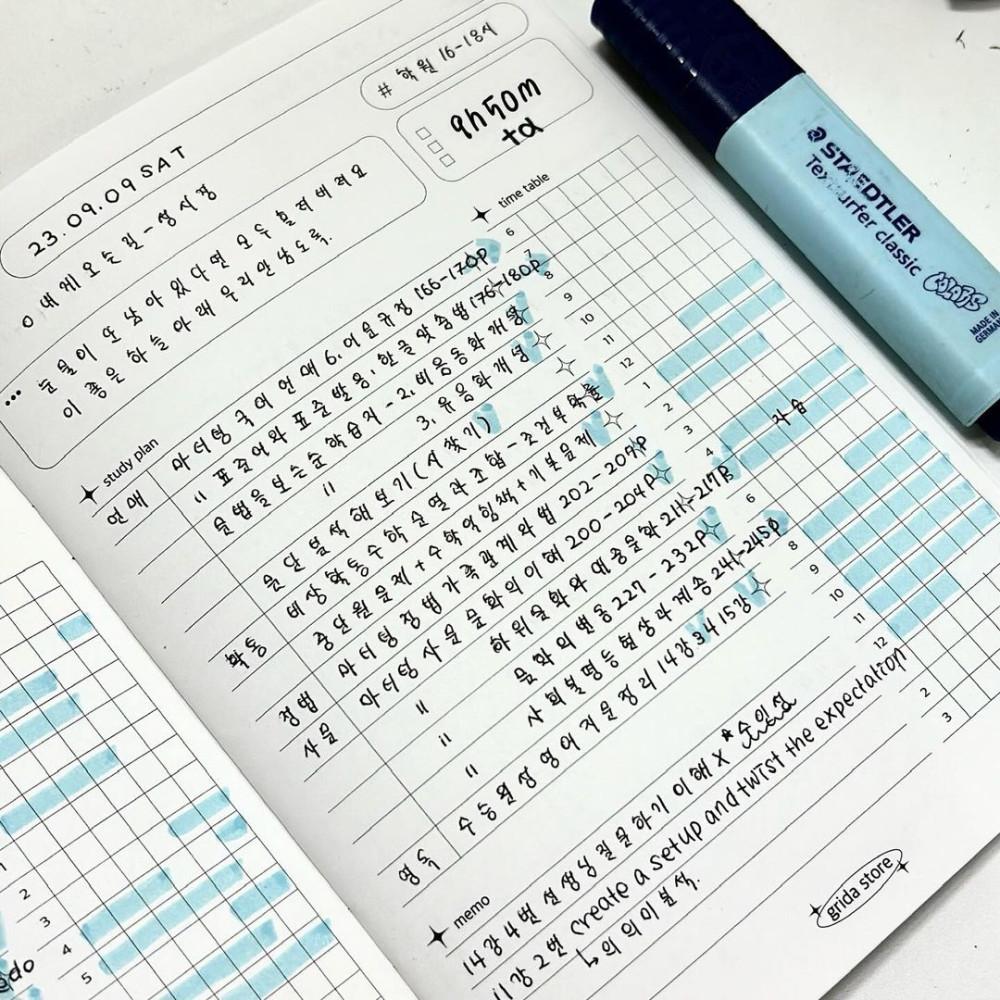 # 학원 16-18시
23.09.09 SAT
9h50m
+α
내게 오는 길 - 성시경
눈물이 또 남아 있다면 모두 흘려버려요
이 좋은 하늘 아래 우리만 남도록.
time table
study plan
언매 마더텅 국어 언매 6. 어문규정 166-170p
" 표준어와 표준발음, 한글 맞춤법 176-180p
문법을 보는 눈 학습지 - 2. 비음동화 개념
" 3. 유음화 개념
문단 분석 해보기 (A 찾기)
확통 비상 확통 수학 순열과 조합 - 조건부확률
중단원 문제 + 수학익힘책 + 기본문제
정법 마더텅 정법 가족관계와 법 202-209p
사문 마더텅 사문 문화의 이해 200-204p
" 하위문화와 대중문화 211-217p
" 문화의 변동 227-232p
" 사회 불평등 현상과 계층 241-245p
영독 수능완성 영어 지문 정리 14강 3 4 15강
6
8
9
10
11
12
1
2
3
4
6
8
9
10
11
12
2
3
자습
memo
14강 4번 선생님 질문하기 이해 X *수일치
11강 2번 create a setup and twist the expectation
↳ 의 의미 분석.
grida store
STAEDTLER
Textsurfer classic
COLORS
MADE IN
GERMANY
1
2
3
4
5